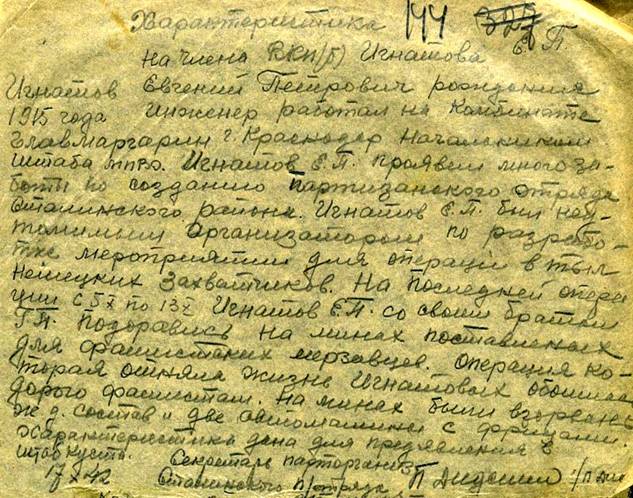 Характеристика 144
на члена ВКП(б) Игнатова Е. П.
Игнатов Евгений Петрович рождения
1915 года инженер работал на Комбинате
Главмаргарин г. Краснодар Начальником
штаба МПВО. Игнатов Е.П. проявил много за-
боты по созданию партизанского отряда
Сталинского района. Игнатов Е.П. был неу-
томимым организатором по разрабо-
тке мероприятий для операции в тыл
Немецких Захватчиков. На последней опера
ции с 5X по 13X Игнатов Е.П. со своим братом
Г.П. подорвались на минах поставленных
для фашистких мерзавцев. Операция ко-
торая отняла жизнь Игнатовых обошлась
дорого фашистам. На минах были взорваны
ж.д. состав и две автомашины с фрицами.
Характеристика дана для предявления в
штаб куста.
Секретарь парторганиз.
17 X 42 Сталинского п/отряда